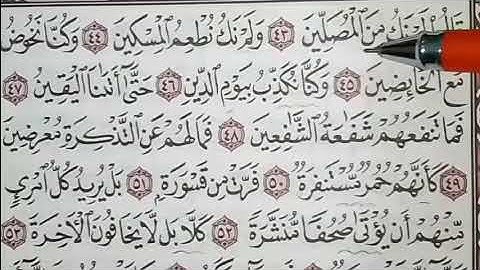 قَالُوا۟ لَمْ نَكُ مِنَ ٱلْمُصَلِّينَ ٤٣ وَلَمْ نَكُ نُطْعِمُ ٱلْمِسْكِينَ ٤٤ وَكُنَّا نَخُوضُ
مَعَ ٱلْخَآئِضِينَ ٤٥ وَكُنَّا نُكَذِّبُ بِيَوْمِ ٱلدِّينِ ٤٦ حَتَّىٰٓ أَتَىٰنَا ٱلْيَقِينُ ٤٧
فَمَا تَنفَعُهُمْ شَفَٰعَةُ ٱلشَّٰفِعِينَ ٤٨ فَمَا لَهُمْ عَنِ ٱلتَّذْكِرَةِ مُعْرِضِينَ
٤٩ كَأَنَّهُمْ حُمُرٌ مُّسْتَنفِرَةٌ ٥٠ فَرَّتْ مِن قَسْوَرَةٍۭ ٥١ بَلْ يُرِيدُ كُلُّ ٱمْرِئٍ
مِّنْهُمْ أَن يُؤْتَىٰ صُحُفًا مُّنَشَّرَةً ٥٢ كَلَّا بَل لَّا يَخَافُونَ ٱلْءَاخِرَةَ ٥٣